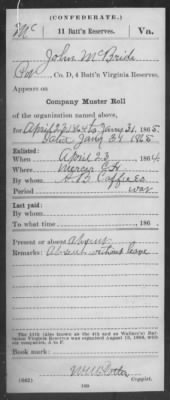 (CONFEDERATE.)
Mc 11 Batt'n Reserves, Va.
John McBride
Pvt, Co. D, 4 Batt'n Virginia Reserves,
Appears on
Company Muster Roll
of the organization named above,
for April 23, 1864 to Jany 31, 1865
dated Jany 31 1865
Enlisted:
When April 23, 1864
Where Mercer C.H.
By whom
Period war
Last paid:
By whom
To what time , 186
Present or absent Absent
Remarks: Absent without leave
The 11th (also known as the 4th and as Wallace's) Battalion Virginia Reserves was organized August 13, 1864, with six companies, A to F.
Book mark:
(642)
Copyist.